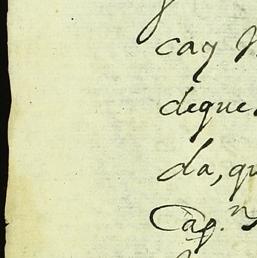 cay
deque
da, qu
Cap.n